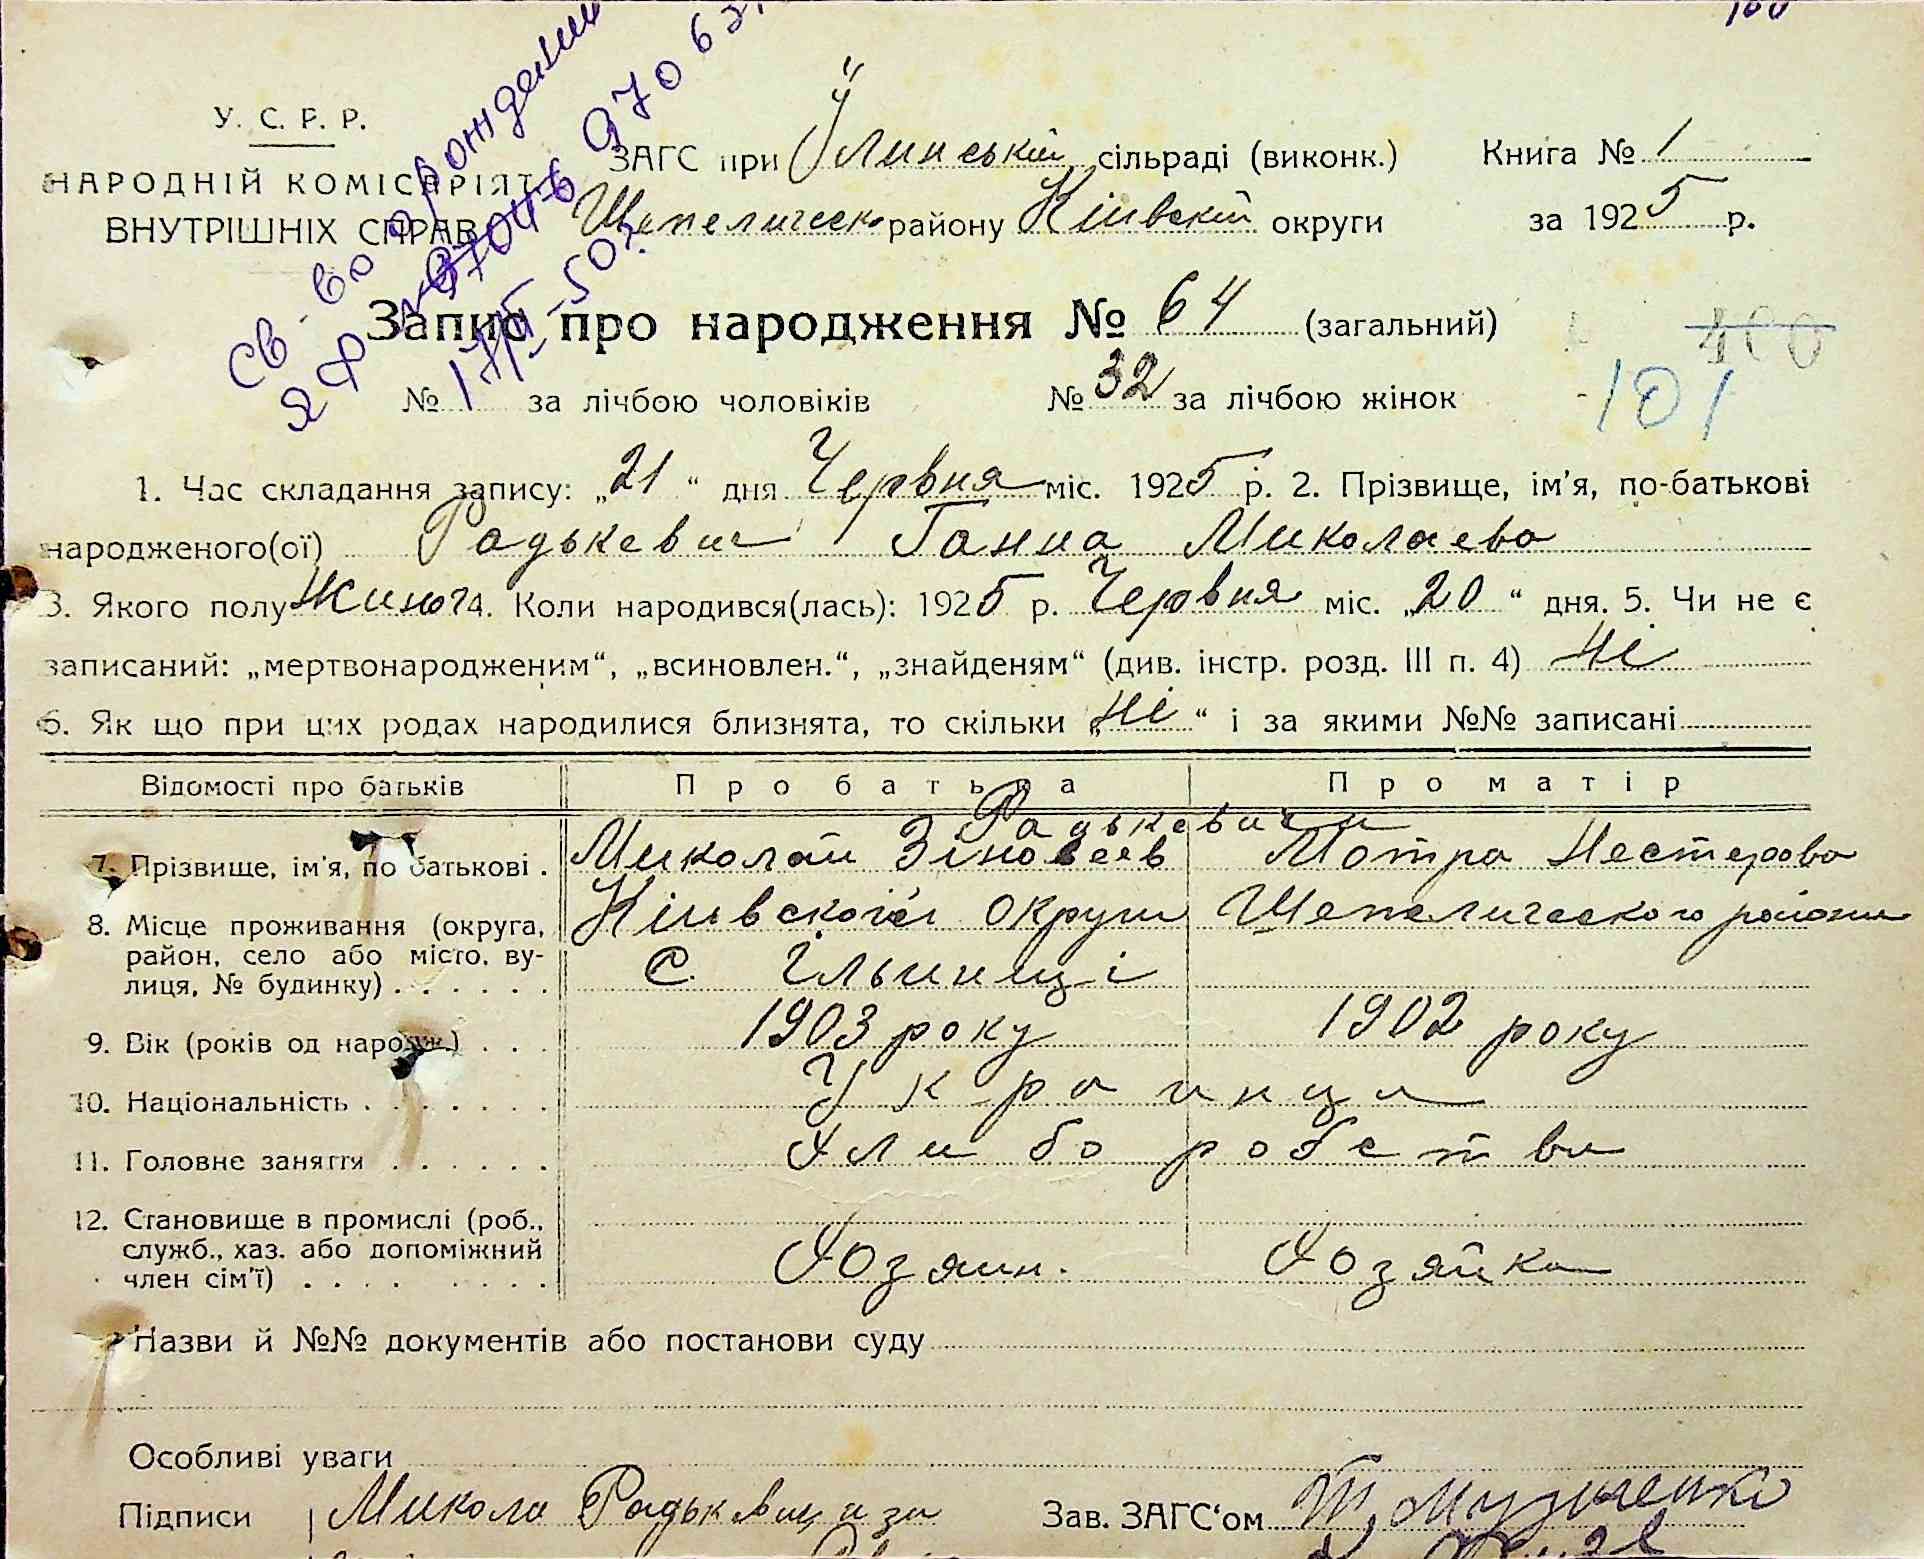 100
Св-во о рождении
У. С. Р. Р.
ЗАГС при Ілинській сільраді (виконк.) Книга № 1
НАРОДНІЙ КОМІСАРІЯТ
ВНУТРІШНІХ СПРАВ
Шепелическо району Київскій округи за 1925 р.
Запис про народження № 64 (загальний)
400
101
№ за лічбою чоловіків № 32 за лічбою жінок
1. Час складання запису: „21“ дня Червня міс. 1925 р. 2. Прізвище, ім'я, по-батькові
народженого(ої) Радькевич Ганна Миколаева
3. Якого полу Жиноч 4. Коли народився(лась): 1925 р. Червня міс. „20“ дня. 5. Чи не є
записаний: „мертвонародженим“, „всиновлен.“, „знайденям“ (див. інстр. розд. III п. 4) Ні
6. Як що при цих родах народилися близнята, то скільки „Ні“ і за якими №№ записані
Відомості про батьків Про батька Про матір
Радькевичи
7. Прізвище, ім'я, по батькові . Миколай Зіновеев Мотра Нестерова
8. Місце проживання (округа, Київскогої округи Шепелического района
район, село або місто, ву-
лиця, № будинку) . . . . . . С. Ільинці
9. Вік (років од народж.) . . . 1903 року 1902 року
10. Національність . . . . . . . Украинци
11. Головне заняття . . . . . . Хлиборобства
12. Становище в промислі (роб.,
служб., хаз. або допоміжний
член сім'ї) . . . . . . . . Хозяин. Хозяйка
Назви й №№ документів або постанови суду
Особливі уваги
Підписи Микола Радькевич
Зав. ЗАГС'ом